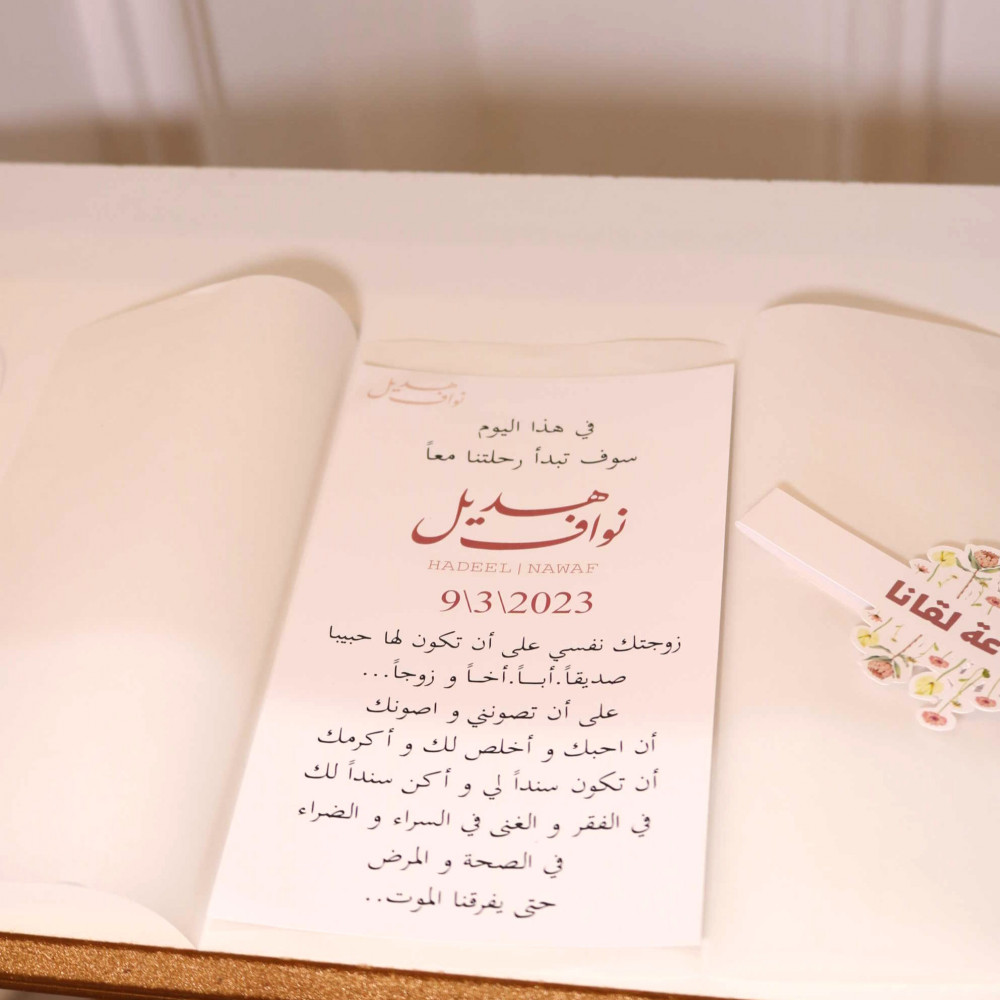 هديل
نواف
في هذا اليوم
سوف تبدأ رحلتنا معاً
هديل
نواف
HADEEL | NAWAF
9\3\2023
زوجتك نفسي على أن تكون لها حبيبا
صديقاً.أبــاً.أخــاً و زوجاً...
على أن تصونني و اصونك
أن احبك و أخلص لك و أكرمك
أن تكون سنداً لي و أكن سنداً لك
في الفقر و الغنى في السراء و الضراء
في الصحة و المرض
حتى يفرقنا الموت..
لقانا